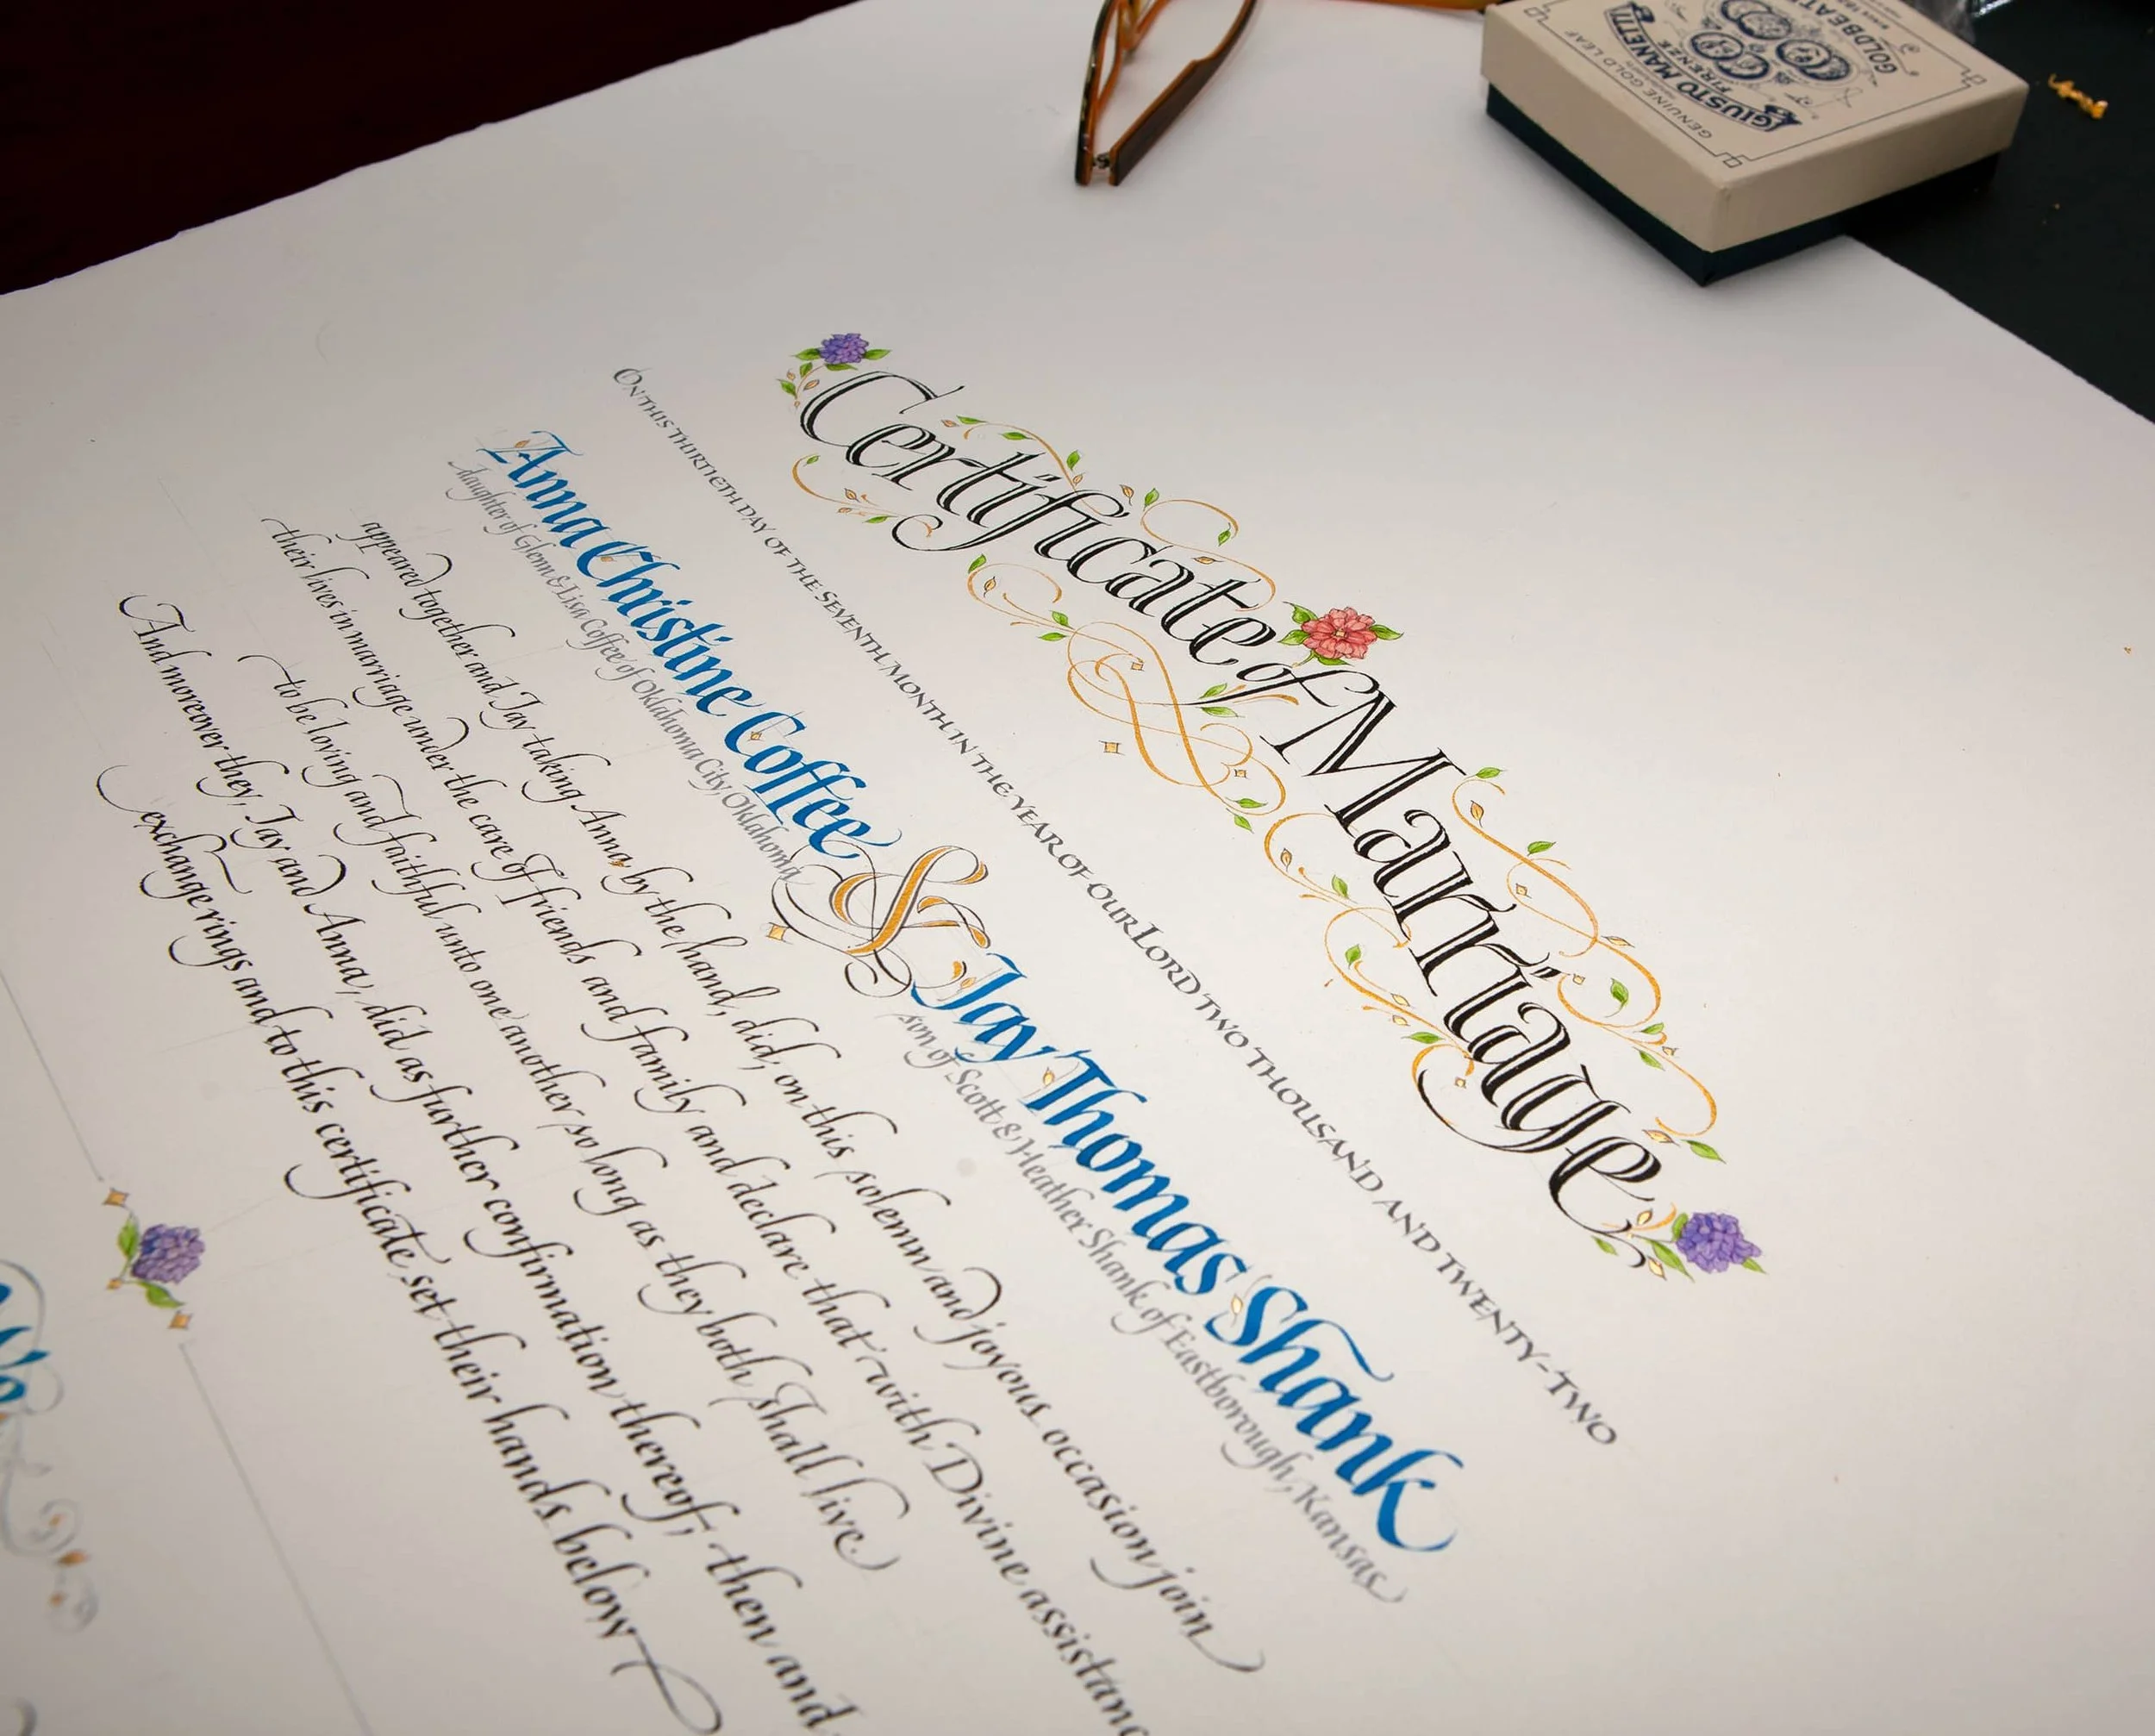 Certificate of Marriage
On this thirtieth day of the Seventh Month in the Year of our Lord Two Thousand and Twenty-Two
Anna Christine Coffee & Jay Thomas Shank
daughter of Glenn & Lisa Coffee of Oklahoma City, Oklahoma
son of Scott & Heather Shank of Eastborough, Kansas
appeared together and Jay taking Anna by the hand, did, on this solemn and joyous occasion join
their lives in marriage under the care of friends and family and declare that with Divine
to be loving and faithful unto one another so long as they both shall live
And moreover they, Jay and Anna, did as further confirmation thereof, then and
exchange rings and to this certificate set their hands below
GIUSTO MANETTI
FIRENZE
GENUINE GOLD LEAF